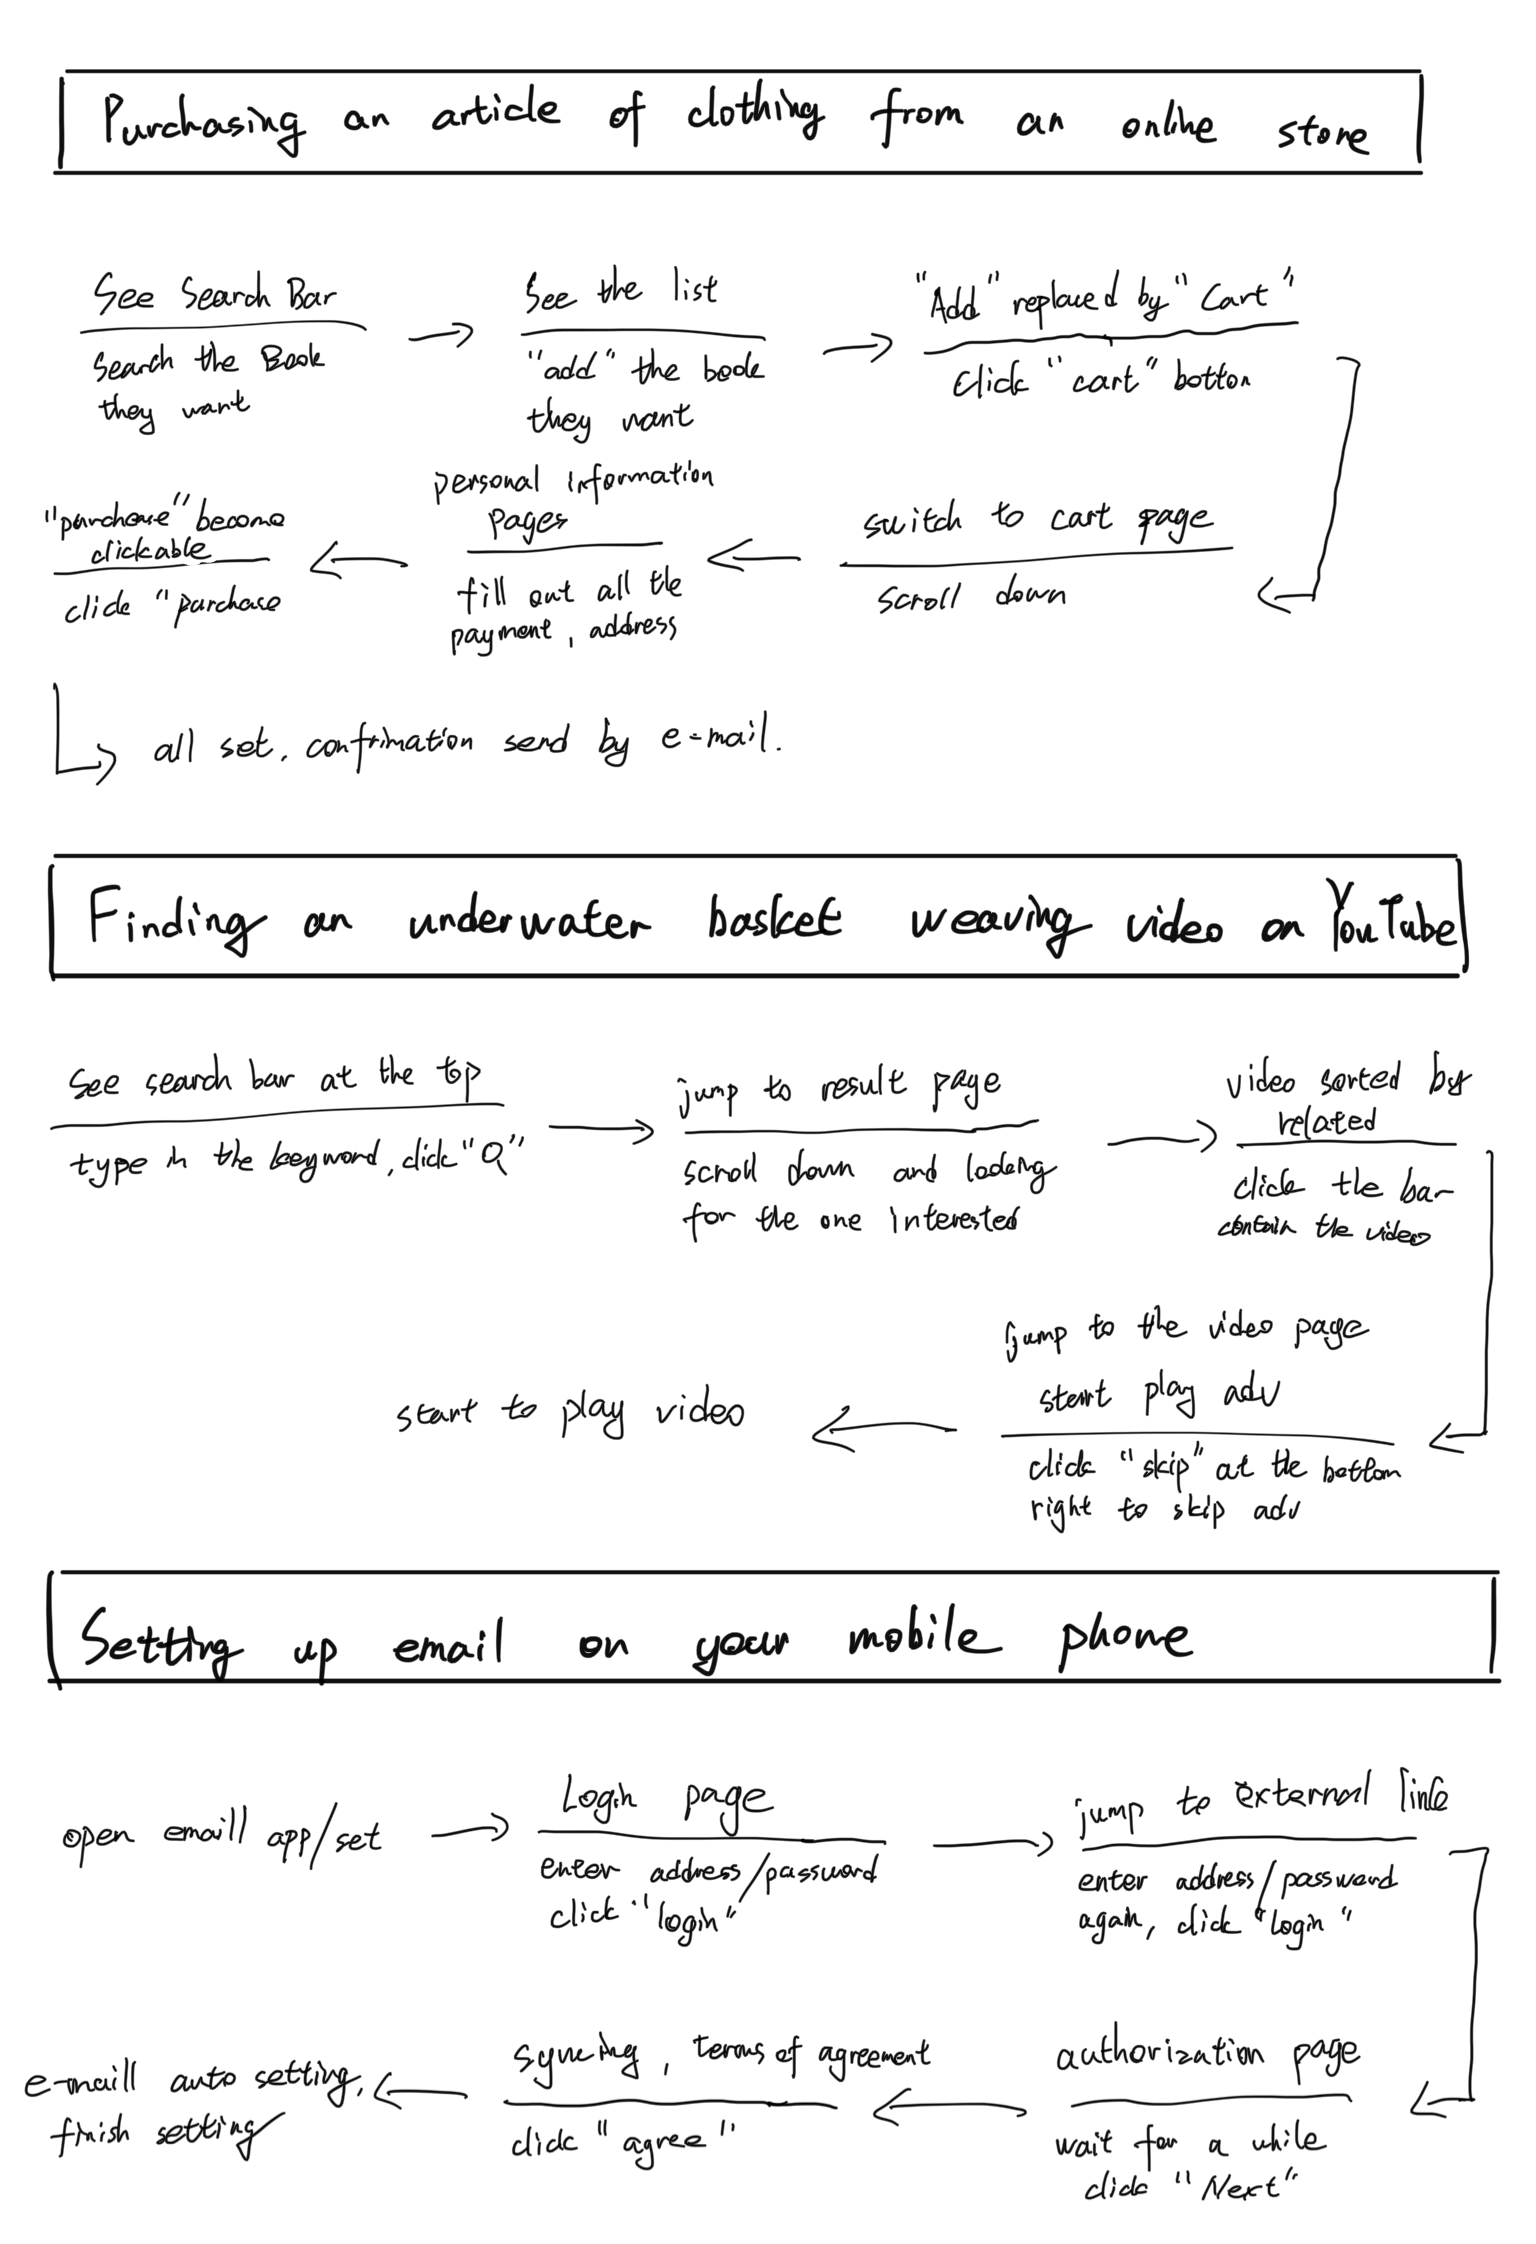 Purchasing an article of clothing from an online store
See Search Bar
search the Book
they want
See the list
"add" the book
they want
"Add" replaced by "Cart"
Click "cart" botton
switch to cart page
scroll down
personal information
pages
fill out all the
payment, address
"purchase" become
clickable
click "purchase
all set. confrimation send by e-mail.
Finding an underwater basket weaving video on YouTube
See search bar at the top
type in the keyword, click "Q"
jump to result page
scroll down and looking
for the one interested
video sorted by
related
click the bar
contain the video
jump to the video page
start play adv
click "skip" at the bottom
right to skip adv
start to play video
Setting up email on your mobile phone
open emaill app/set
Login page
enter address/password
click "login"
jump to external link
enter address/password
again, click "login"
authorization page
wait for a while
click "Next"
syncing, terms of agreement
click "agree"
e-maill auto setting,
finish setting